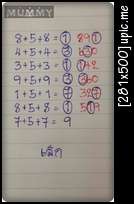 MUMMY
8+5+8=① 891
4+5+4=③ 630
3+5+3=① 142
9+5+9=③ 360
1+5+1=⑦ 397
8+5+8=① 519
7+5+7=9
เม๊ก
[281x500]upic.me